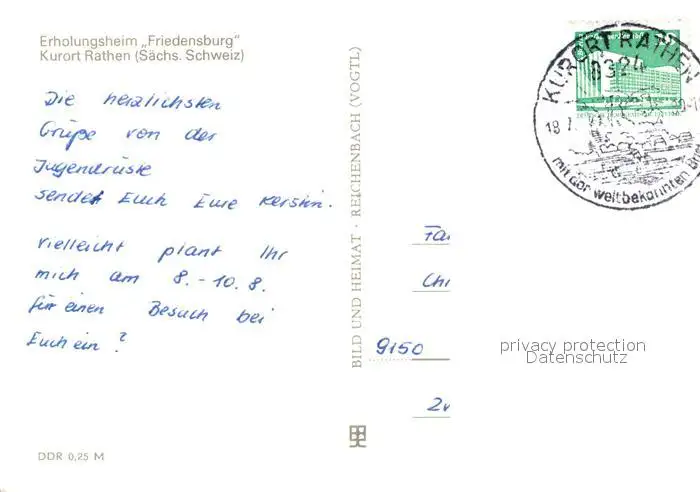 Erholungsheim „Friedensburg"
Kurort Rathen (Sächs. Schweiz)
Die herzlichsten
Grüße von der
Jugendrüste
sendet Euch Eure Kerstin.
Vielleicht plant Ihr
mich am 8. - 10. 8.
für einen Besuch bei
Euch ein?
DDR 0,25 M
BILD UND HEIMAT · REICHENBACH (VOGTL)
KURORT RATHEN
8324
mit der weltbekannten
Fa
Chi
9150
Zw
privacy protection
Datenschutz